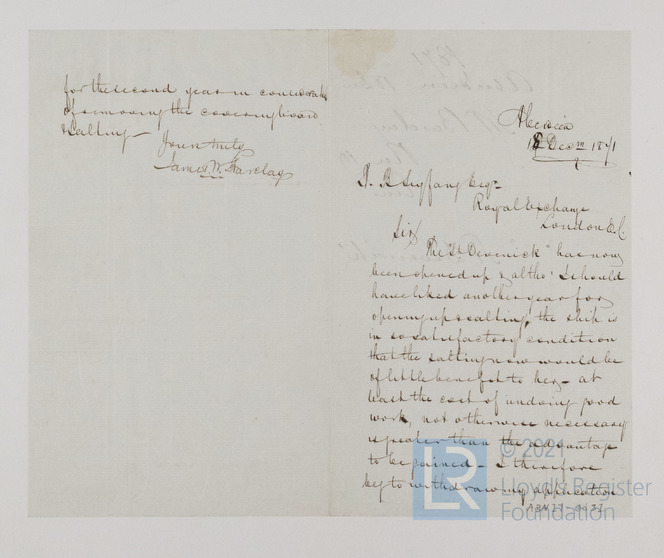 Aberdeen
18 Decm 1871
Esqre
Royal Exchange
London E.C.
Sir
The "St Devenick" has now
been opened up & altho' I should
have liked another year for
opening up & salting, the ship is
in so satisfactory condition
that the salting now would be
of little benefit to her – at
least the cost of undoing good
work, not otherwise necessary
is greater than the advantage
to be gained – I therefore
beg to withdraw my application
for the second year in
of removing the coveringboard
& salting –
Yours truly
James W. Barclay
© 2021
LR
Lloyd's Register
Foundation